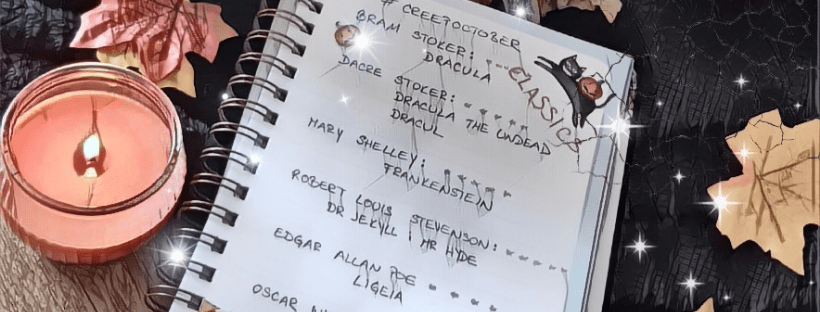 # CREEPTOBER
BRAM STOKER:
DRACULA
CLASSICS
DACRE STOKER:
DRACULA THE UNDEAD
DRACUL
MARY SHELLEY:
FRANKENSTEIN
ROBERT LOUIS STEVENSON:
DR JEKYLL & MR HYDE
EDGAR ALLAN POE
LIGEIA
OSCAR